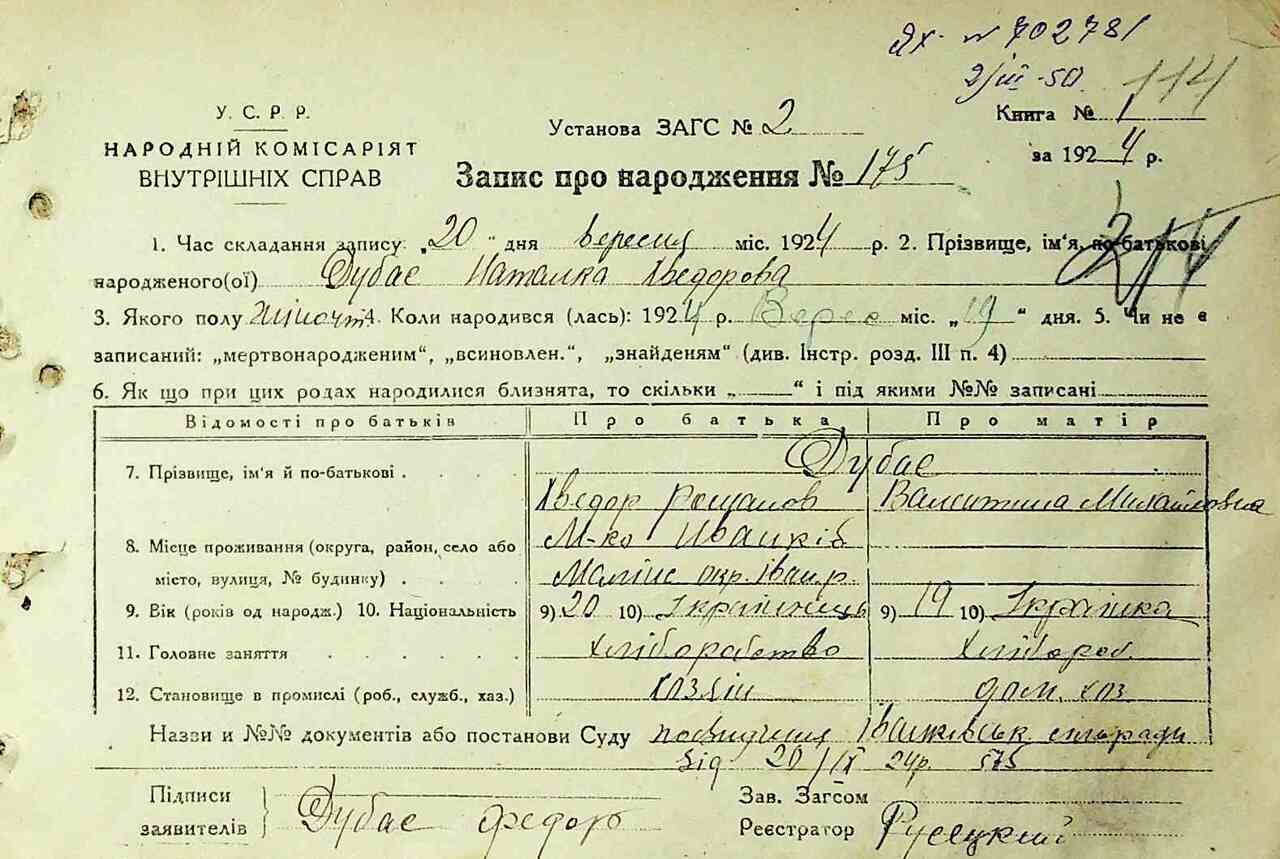 Ях. № 702781
2/III-50.
114
У. С. Р. Р.
НАРОДНІЙ КОМІСАРІЯТ
ВНУТРІШНІХ СПРАВ
Установа ЗАГС № 2
Книга № 1
за 1924 р.
Запис про народження № 175
1. Час складання запису: „20" дня вересня міс. 1924 р. 2. Прізвище, ім'я, по-батькові
народженого(ої) Дубас Наталка Хведорова
3. Якого полу жіночт 4. Коли народився (лась): 1924 р. Верес міс. „19" дня. 5. Чи не є
записаний: „мертвонародженим", „всиновлен.", „знайденям" (див. Інстр. розд. III п. 4)
6. Як що при цих родах народилися близнята, то скільки „ " і під якими №№ записані
Відомості про батьків Про батька Про матір
7. Прізвище, ім'я й по-батькові . . . . Дубас
Хведор Романов Валентина Михайловна
8. Місце проживання (округа, район, село або М-ко Иванків
місто, вулиця, № будинку) . . . . Малинс окр. Іван р.
9. Вік (років од народж.) 10. Національність 9) 20 10) Українець 9) 19 10) Українка
11. Головне заняття . . . . . Хліборобство Хлібороб.
12. Становище в промислі (роб., служб., хаз.) хозяїн дом. хоз
Назви и №№ документів або постанови Суду посвідчення Іванківськ сільради
від 20/IX 24р. 575
Підписи
заявителів } Дубас Федор
Зав. Загсом
Реєстратор Русецкий